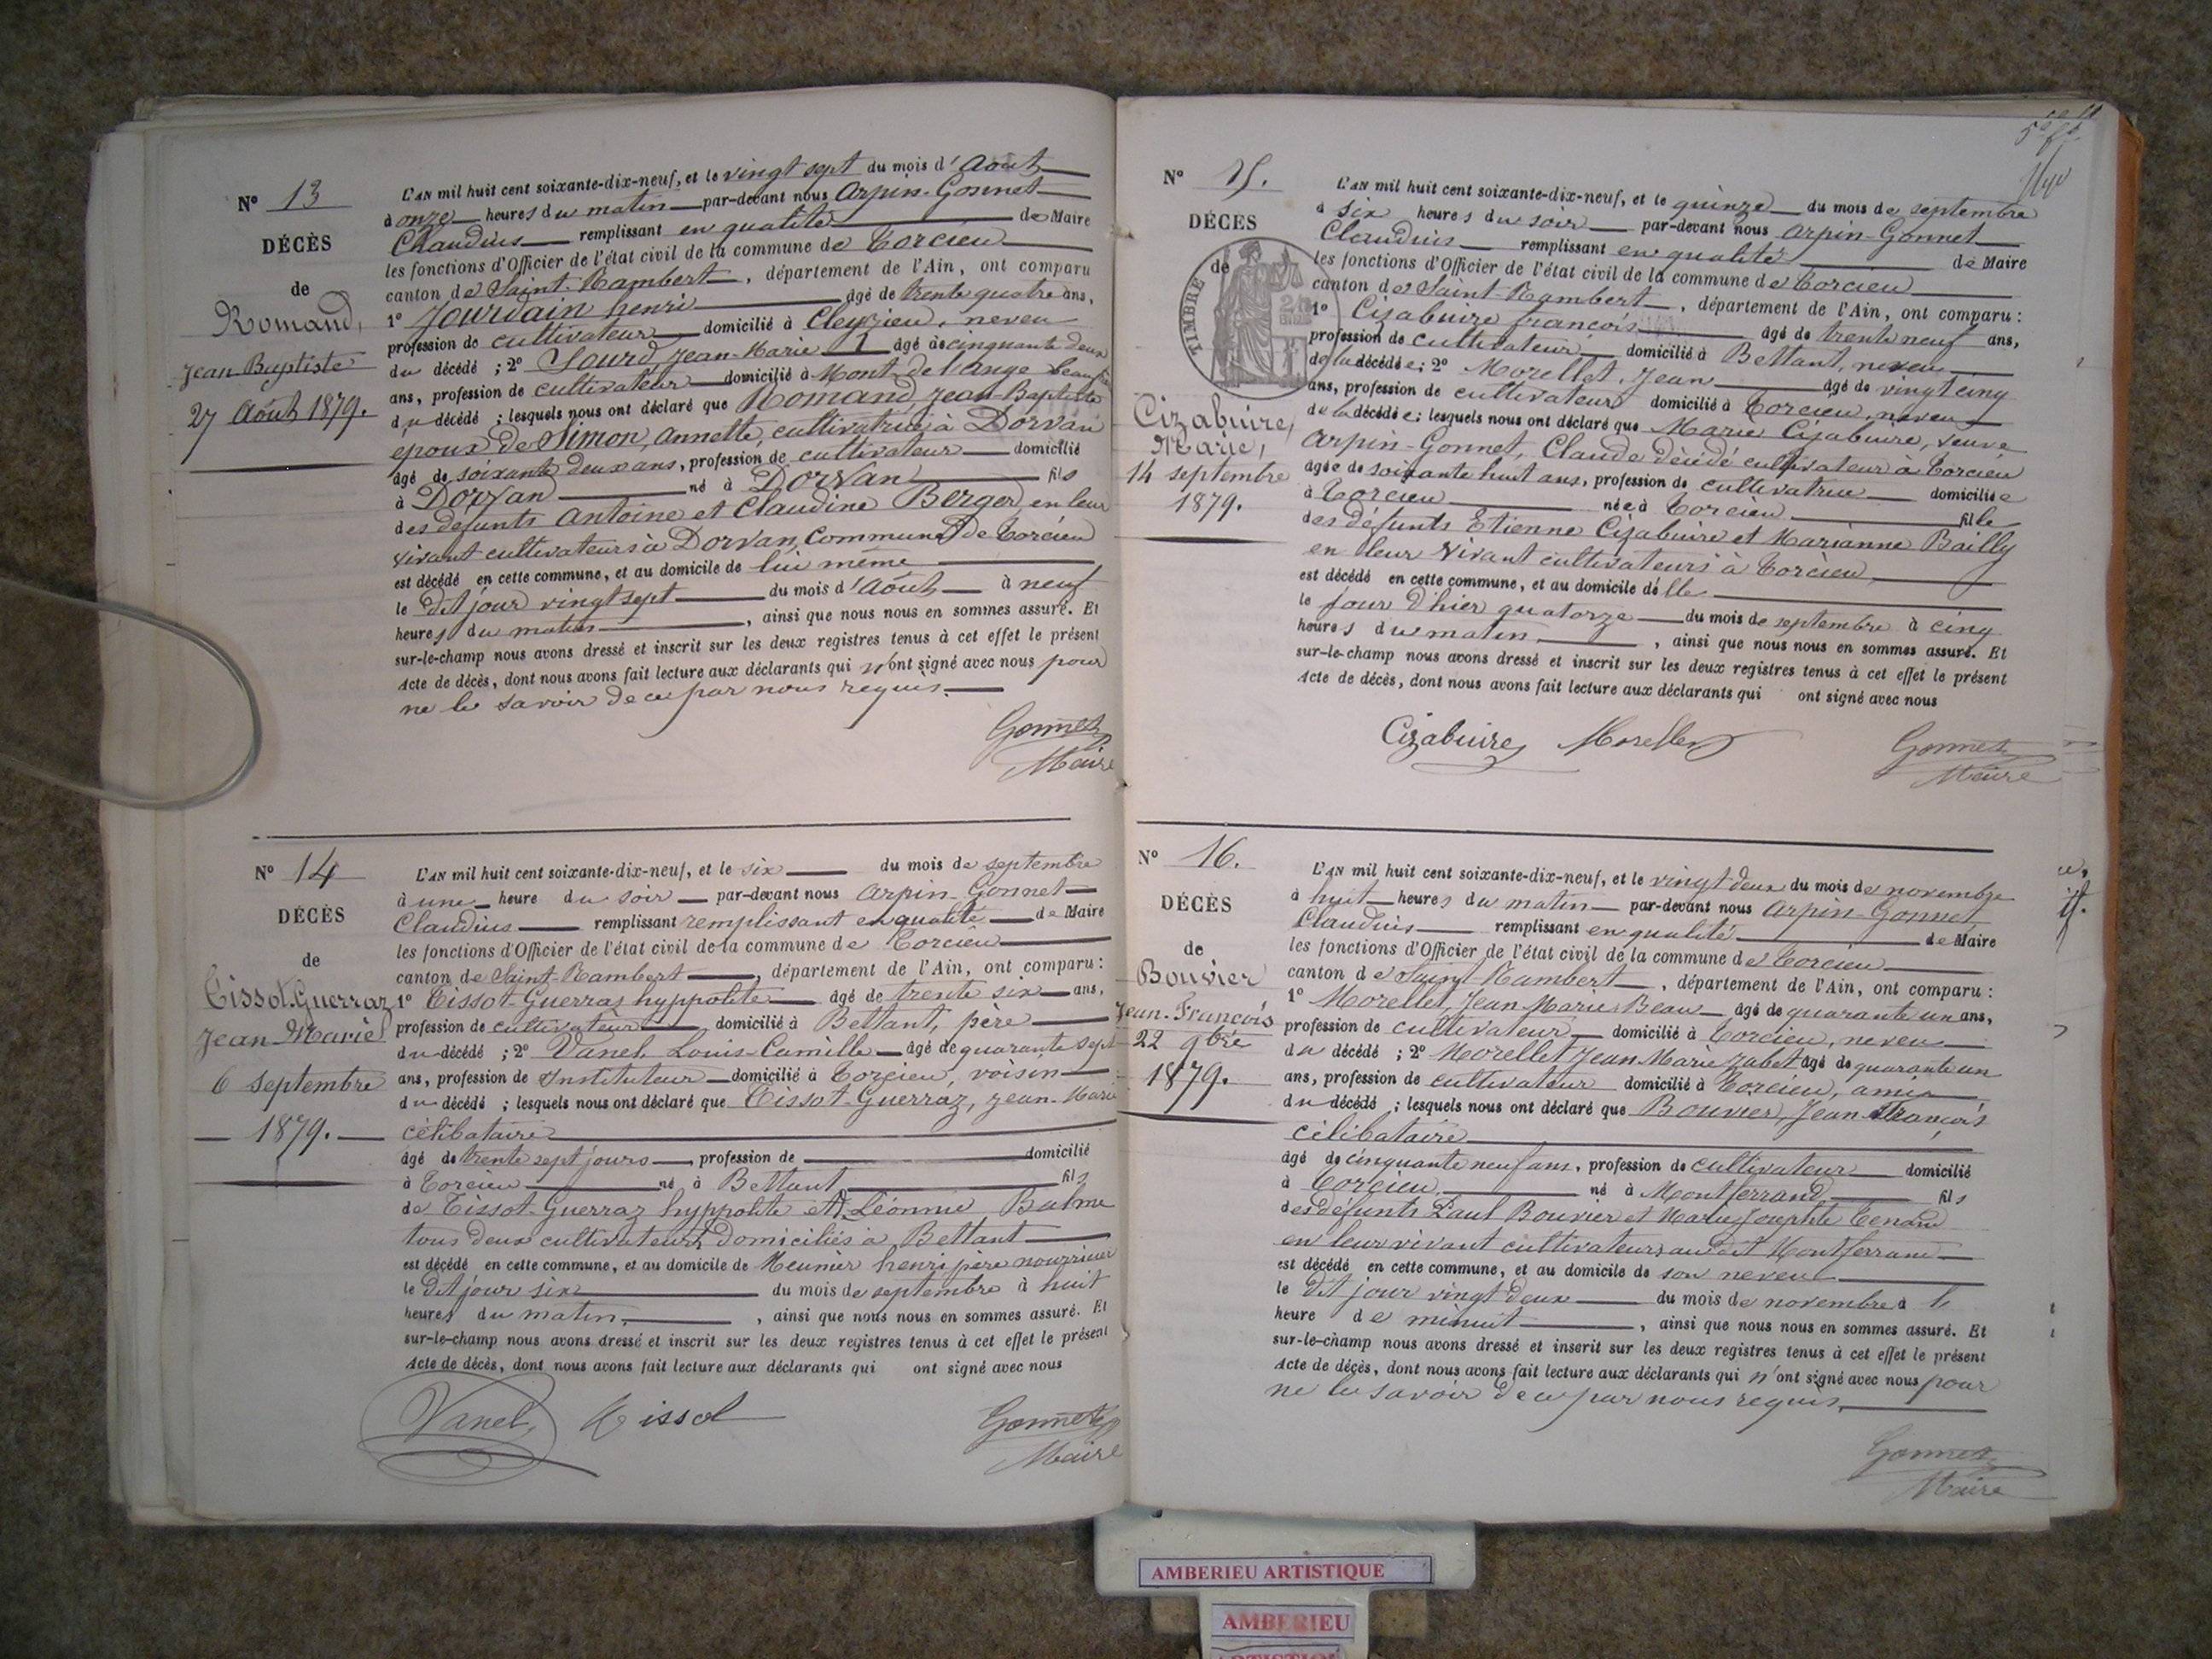 N° 13
DÉCÈS
de
Romand,
Jean Baptiste
27 Août 1879.
L'AN mil huit cent soixante-dix-neuf, et le vingt sept du mois d'Août
à onze heures du matin par-devant nous Arpin-Gonnet
Claudius remplissant en qualité de Maire
les fonctions d'Officier de l'état civil de la commune de Torcieu
canton de Saint-Rambert, département de l'Ain, ont comparu
1° Jourdain henri âgé de trente quatre ans,
profession de cultivateur domicilié à Cleyzieu, neveu
du décédé ; 2° Sourd Jean-Marie âgé de cinquante deux
ans, profession de cultivateur domicilié à Mont de l'ange beau
du décédé ; lesquels nous ont déclaré que Romand Jean-Baptiste
epoux de Simon, Annette, cultivatrice à Dorvan
âgé de soixante deux ans, profession de cultivateur domicilié
à Dorvan né à Dorvan fils
des defunts Antoine et Claudine Berger en leur
vivant cultivateurs à Dorvan, Commune de Torcieu
est décédé en cette commune, et au domicile de lui même
le dit jour vingt sept du mois d'Août à neuf
heures du matin, ainsi que nous nous en sommes assuré. Et
sur-le-champ nous avons dressé et inscrit sur les deux registres tenus à cet effet le présent
Acte de décès, dont nous avons fait lecture aux déclarants qui n'ont signé avec nous pour
ne le savoir de ce par nous requis.
Gonnet
Maire
N° 14
DÉCÈS
de
Tissot-Guerraz
Jean-Marie
6 septembre
1879.
L'AN mil huit cent soixante-dix-neuf, et le six du mois de septembre
à une heure du soir par-devant nous Arpin-Gonnet
Claudius remplissant remplissant en qualité de Maire
les fonctions d'Officier de l'état civil de la commune de Torcieu
canton de Saint-Rambert, département de l'Ain, ont comparu :
1° Tissot-Guerraz hyppolite âgé de trente six ans,
profession de cultivateur domicilié à Bettant, père
du décédé ; 2° Vanel Louis-Camille âgé de quarante sept
ans, profession de Instituteur domicilié à Torcieu, voisin
du décédé ; lesquels nous ont déclaré que Tissot-Guerraz, Jean-Marie
célibataire
âgé de trente sept jours, profession de domicilié
à Torcieu né à Bettant fils
de Tissot-Guerraz hyppolite et Léonnie Balme
tous deux cultivateurs domiciliés à Bettant
est décédé en cette commune, et au domicile de Meunier henri père nourricier
le dit jour six du mois de septembre à huit
heures du matin, ainsi que nous nous en sommes assuré. Et
sur-le-champ nous avons dressé et inscrit sur les deux registres tenus à cet effet le présent
Acte de décès, dont nous avons fait lecture aux déclarants qui ont signé avec nous
Vanel Tissot Gonnet
Maire
N° 15.
DÉCÈS
de
TIMBRE
Cizabuire,
Marie,
14 septembre
1879.
L'AN mil huit cent soixante-dix-neuf, et le quinze du mois de septembre
à six heures du soir par-devant nous Arpin-Gonnet
Claudius remplissant en qualité de Maire
les fonctions d'Officier de l'état civil de la commune de Torcieu
canton de Saint-Rambert, département de l'Ain, ont comparu :
1° Cizabuire françois âgé de trente neuf ans,
profession de cultivateur domicilié à Bettant, neveu
de la décédée ; 2° Morellet, Jean âgé de vingt cinq
ans, profession de cultivateur domicilié à Torcieu, neveu
de la décédée ; lesquels nous ont déclaré que Marie Cizabuire, veuve
Arpin-Gonnet, Claude décédé cultivateur à Torcieu
âgée de soixante huit ans, profession de cultivatrice domiciliée
à Torcieu née à Torcieu fille
des défunts Etienne Cizabuire et Marianne Bailly
en leur vivant cultivateurs à Torcieu,
est décédé en cette commune, et au domicile délle
le jour d'hier quatorze du mois de septembre à cinq
heures du matin, ainsi que nous nous en sommes assuré. Et
sur-le-champ nous avons dressé et inscrit sur les deux registres tenus à cet effet le présent
Acte de décès, dont nous avons fait lecture aux déclarants qui ont signé avec nous
Cizabuire Morellet Gonnet
Maire
N° 16.
DÉCÈS
de
Bouvier
Jean-François
22 9bre
1879.
L'AN mil huit cent soixante-dix-neuf, et le vingt deux du mois de novembre
à huit heures du matin par-devant nous Arpin-Gonnet
Claudius remplissant en qualité de Maire
les fonctions d'Officier de l'état civil de la commune de Torcieu
canton de Saint-Rambert, département de l'Ain, ont comparu :
1° Morellet, Jean Marie Beau âgé de quarante un ans,
profession de cultivateur domicilié à Torcieu, neveu
du décédé ; 2° Morellet Jean Marie Zabet âgé de quarante un
ans, profession de cultivateur domicilié à Torcieu, ami
du décédé ; lesquels nous ont déclaré que Bouvier, Jean François
célibataire
âgé de cinquante neuf ans, profession de cultivateur domicilié
à Torcieu, né à Montferrand fils
des défunts Paul Bouvier et Marie Josephte Tenand
en leur vivant cultivateurs au dit Montferrand
est décédé en cette commune, et au domicile de son neveu
le dit jour vingt deux du mois de novembre à l
heure de minuit, ainsi que nous nous en sommes assuré. Et
sur-le-champ nous avons dressé et inscrit sur les deux registres tenus à cet effet le présent
Acte de décès, dont nous avons fait lecture aux déclarants qui n'ont signé avec nous pour
ne le savoir de ce par nous requis.
Gonnet
Maire
AMBERIEU ARTISTIQUE
AMBERIEU
ARTISTIQUE